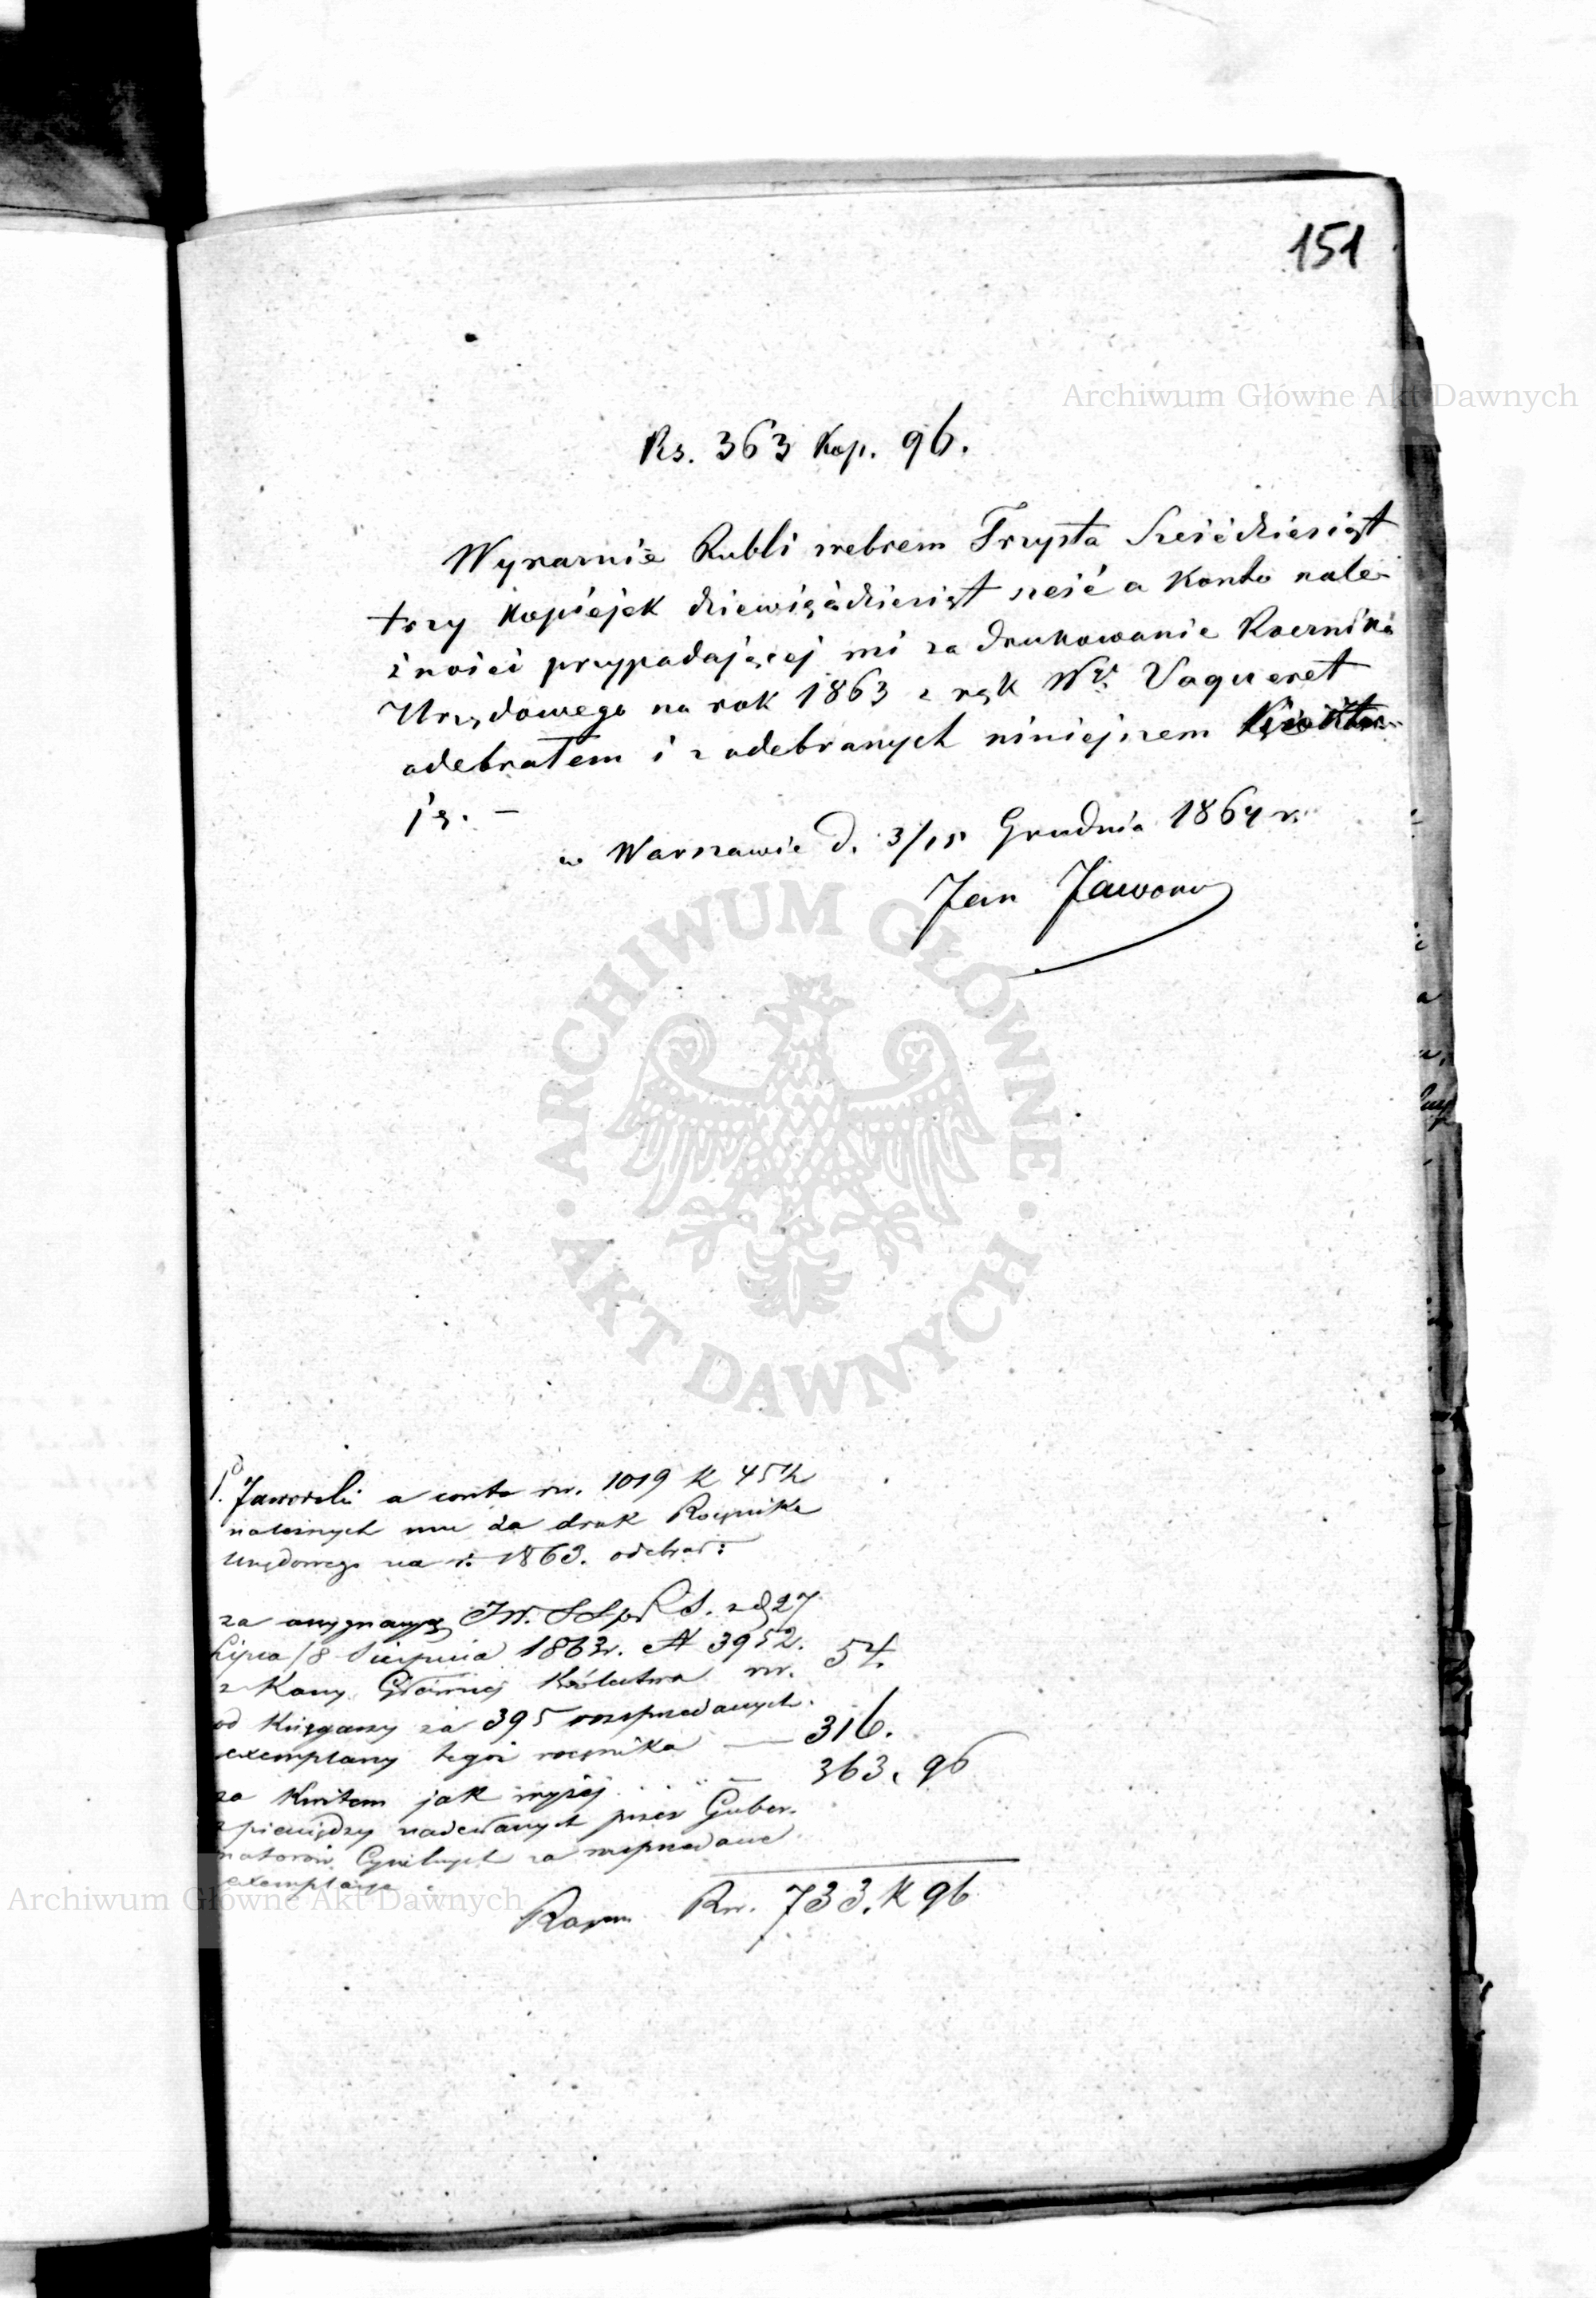 151
Rs. 363 kop. 96.
Wyraznie Rubli srebrem Trzysta Sześćdziesiąt
trzy kopiejek dziewięćdziesiąt sześć a Konto nale-
żności przypadającej mi za drukowanie Rocznika
Urzędowego na rok 1863 z rąk Wº Vaqueret
odebrałem i z odebranych niniejszem Kwituję
ję. –
w Warszawie d. 3/15 Grudnia 1864 r.
Jan Jaworski
P. Jaworski a conto rsr. 1019 k 45½
należnych mu za druk Rocznika
Urzędowego na r. 1863. odebrał:
za assygnacyą JW. z d 27
Lipca/8 Sierpnia 1863r. N 3952.
z Kassy Głównej Królestwa rsr. 54.
od Księgarzy za 395 rozsprzedanych
exemplarzy tegoż rocznika — 316.
za kwitem jak wyżej — 363, 96
z pieniędzy nadesłanych przez Guber-
natorów Cywilnych za rozsprzedane
exemplarze.
Razem Rsr. 733. k 96
Archiwum Główne Akt Dawnych
ARCHIWUM GŁÓWNE
AKT DAWNYCH
Archiwum Główne Akt Dawnych